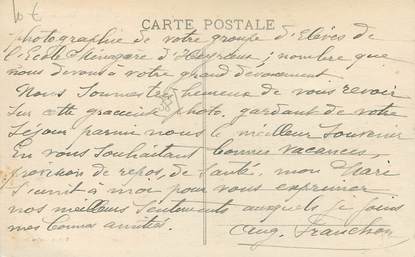 10 €
CARTE POSTALE
photographie de votre groupe d'Elèves de
l'Ecole Ménagère d'Heyrieux ; nombre que
nous devons à votre grand dévouement
Nous sommes heureux de vous revoir
sur cette gracieuse photo, gardant de votre
séjour parmi nous le meilleur souvenir
En vous souhaitant bonnes vacances,
provision de repos, de santé, mon Mari
s'unit à moi pour vous exprimer
nos meilleurs sentiments auxquels je joins
mes bonnes amitiés.
Aug.